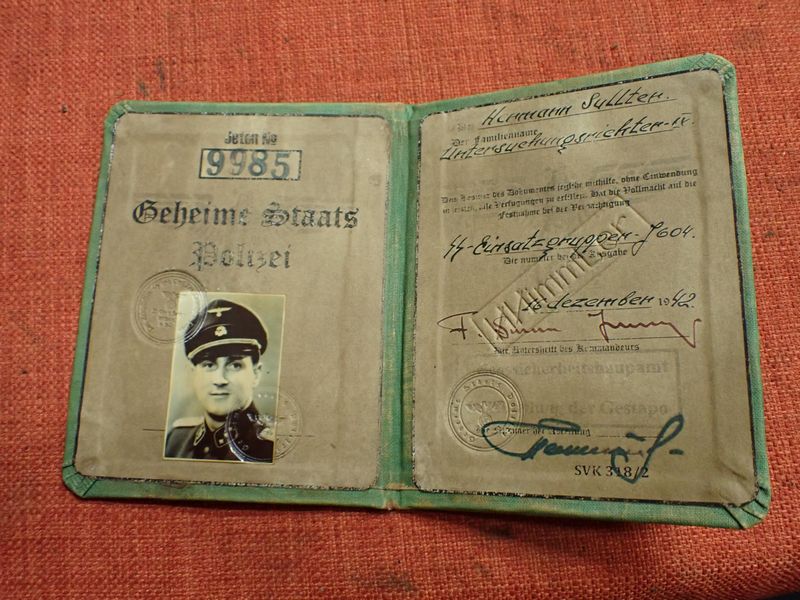 Jeton No
9985
Geheime Staats
Polizei
Hermann Sullter.
Der Familienname
Untersuchungsrichter-ix.
Den Besitzer des Dokumentes jegliche mithilfe, ohne Einwendung
alle Verfugungen zu erfullen. Hat die Vollmacht auf die
Festnahme bei der Verdachtigung
SS-Einsatzgruppen-J604.
Die numer bei der Ausgabe
W.Himmler
16 dezember 1942.
Die Unterschrift des Kommandeurs
Reichssicherheitshauptamt
der Gestapo
SVK 318/2